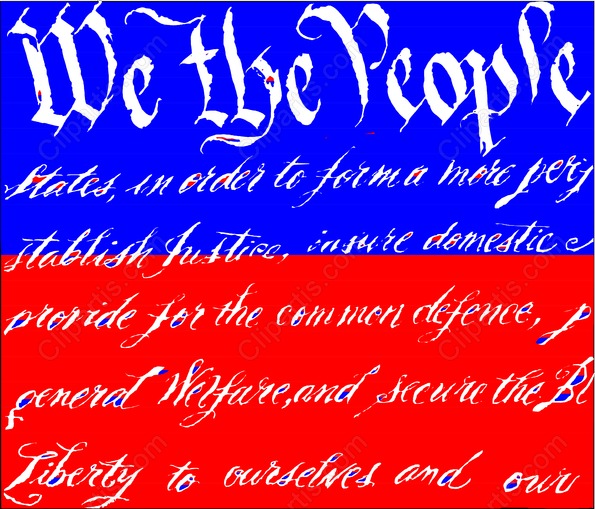 We the People
States, in order to form a more perf
stablish Justice, insure domestic
provide for the common defence, p
general Welfare, and secure the Bl
Liberty to ourselves and our